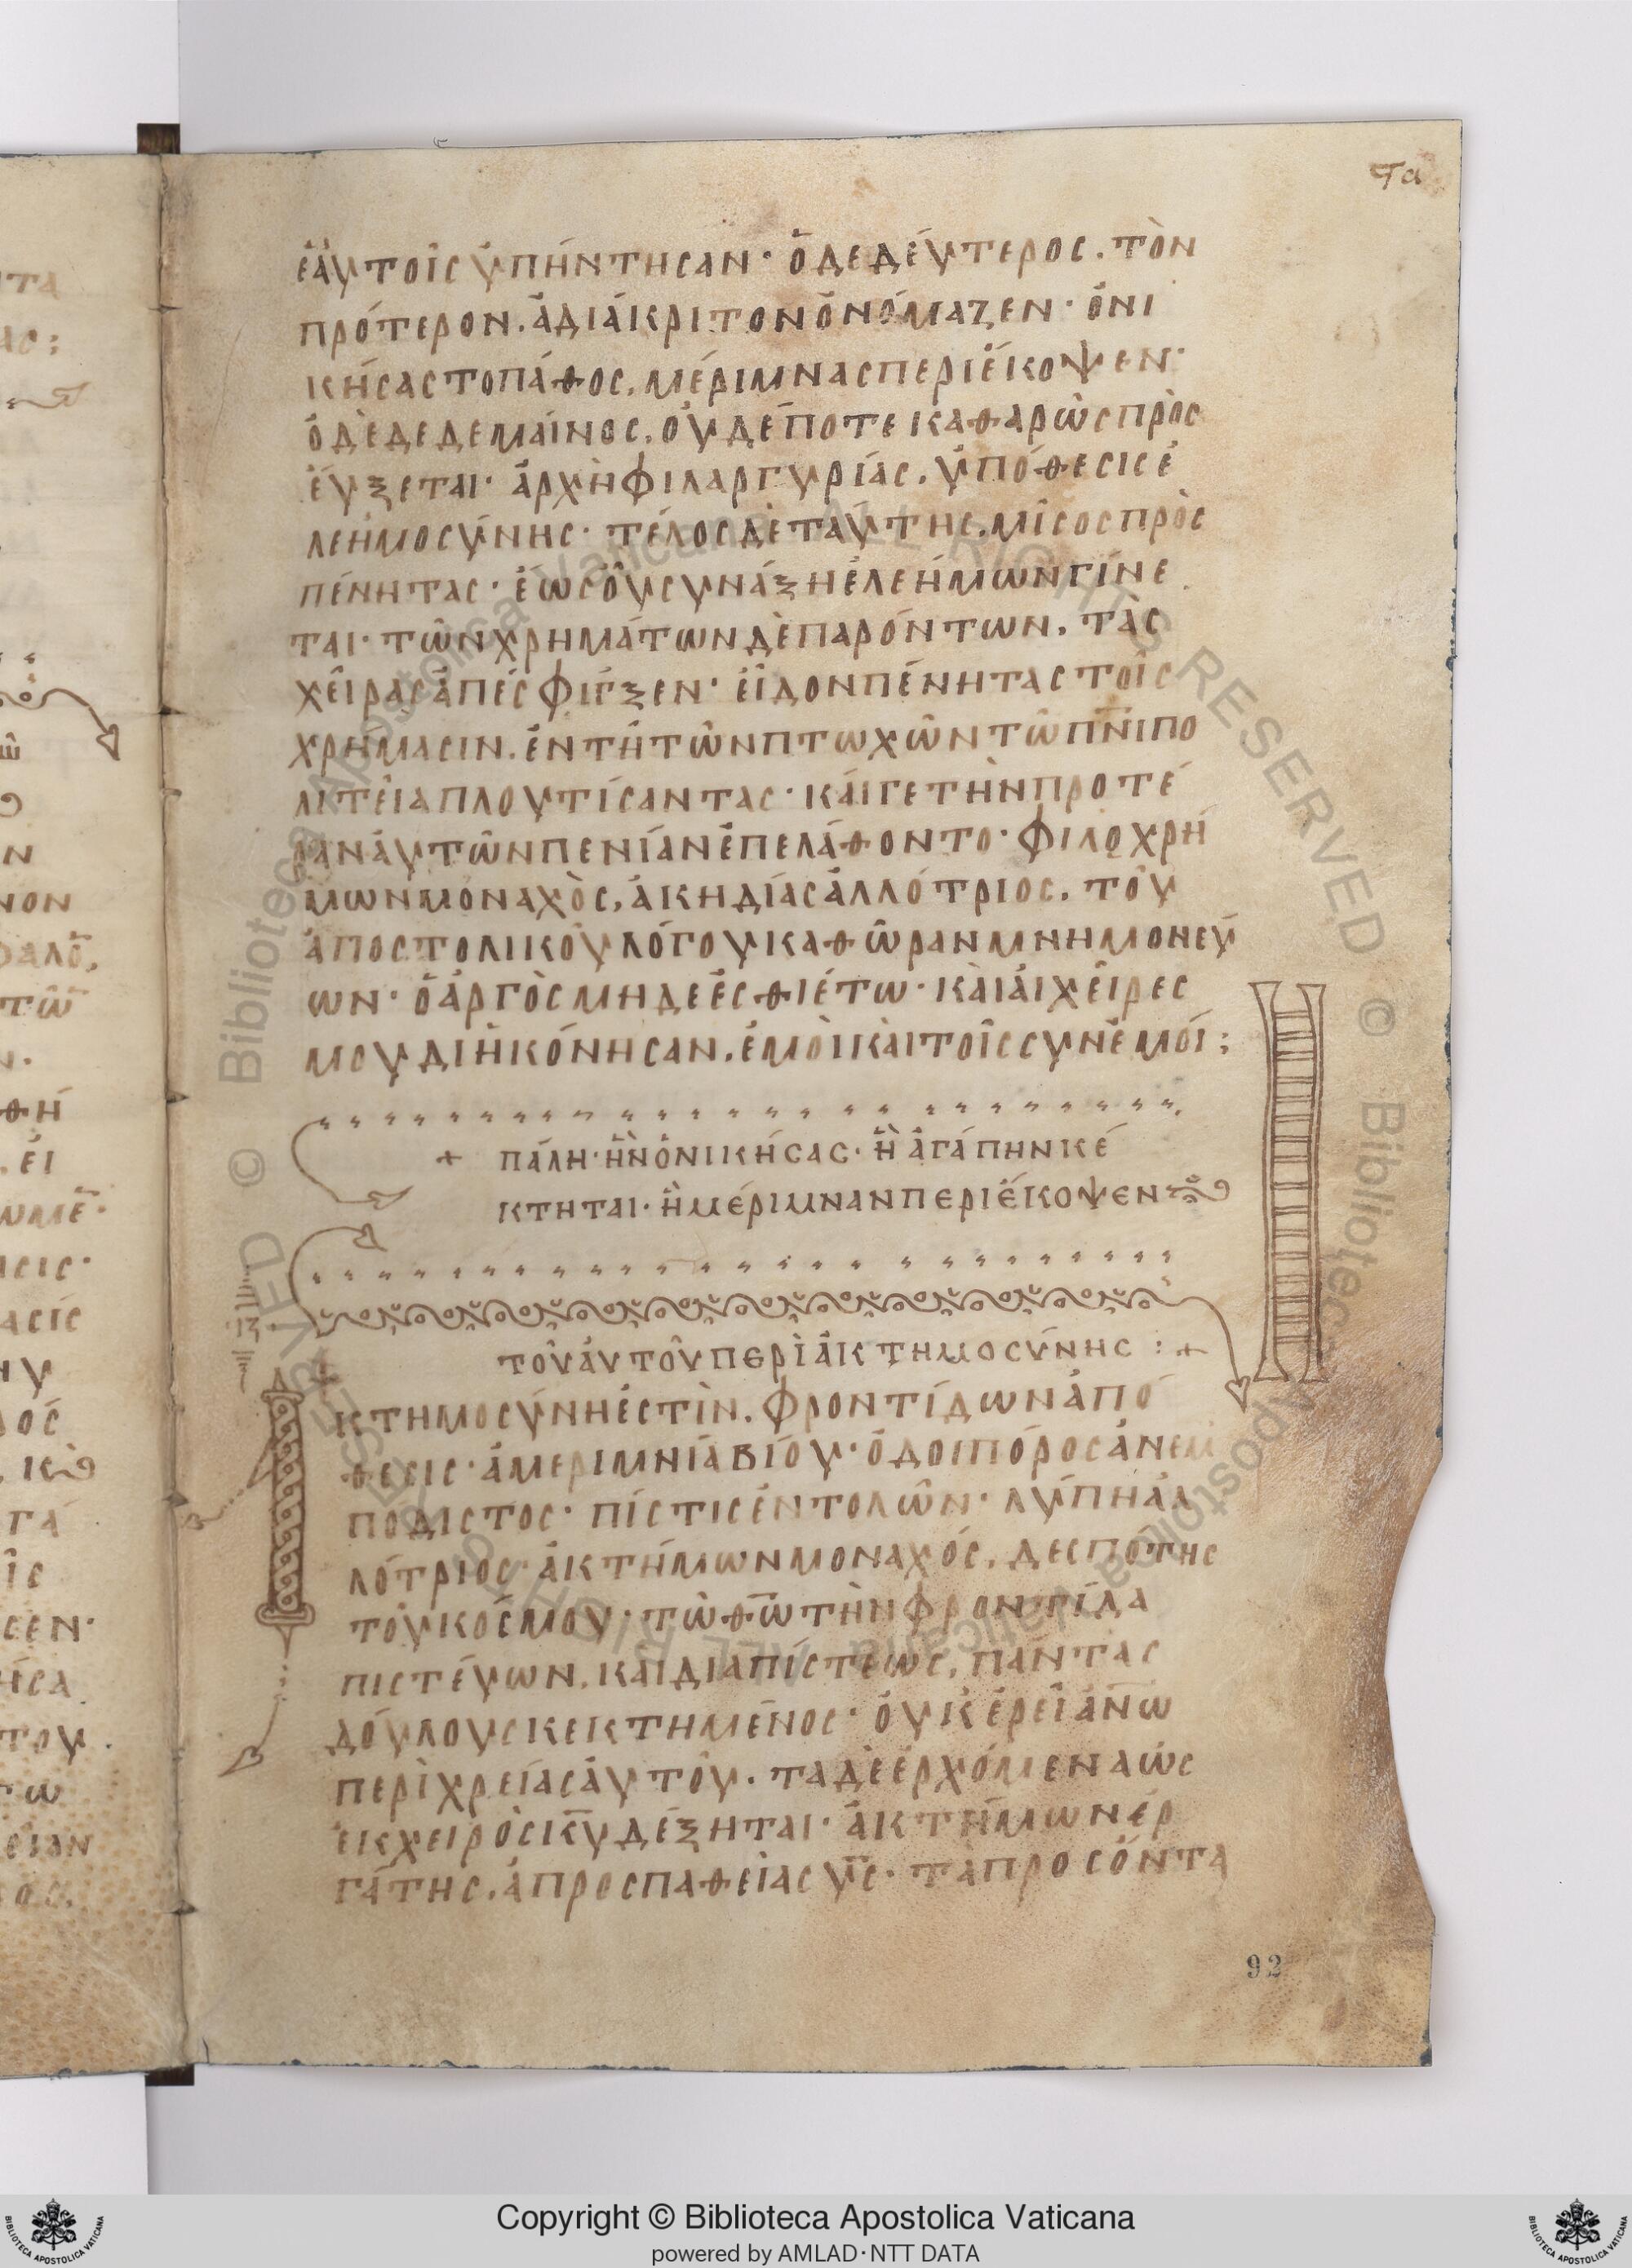 ϟα
ἑἀυτοῖς ὑπήντησαν· ὁ δε δέυτερος. τὸν
πρότερον. ἀδιάκριτον ὀνόμαζεν· ὁ νι
κήσας το πάθος, μέριμνας περιέκοψεν·
ὁ δὲ δεδεμαίνος, οὐδέποτε καθαρῶς πρὸς
έυξεται· ἀρχὴ φιλαργυρίας. ὑπόθεσις ἐ
λεημοσύνης· τέλος δὲ ταύτης, μῖσος πρὸς
πένητας· ἕως οὗ συνάξη ἐλεήμων γίνε
ται· τῶν χρημάτων δὲ παρόντων. τὰς
χεῖρας ἀπέσφιγξεν· εἶδον πένητας τοῖς
χρήμασιν. ἐν τῆ τῶν πτωχῶν τῶ πνι πο
λιτεία πλουτίσαντας· κάι γε τὴν προτέ
ραν ἀυτῶν πενίαν ἐπελάθοντο· φιλοχρή
μων μοναχὸς, ἀκηδίας ἀλλότριος. τοῦ
ἀποστολικοῦ λόγου καθ ὥραν μνημονεύ
ων· ὁ ἀργὸς μηδε ἐσθιέτω· κὰι ἁι χεῖρες
μου διηκόνησαν. ἐμὸι κὰι τοῖς σὺν ἐμόι;
+ πάλη· ἣν ὁ νικήσας· ἢ ἀγάπην κέ
κτηται· ἢ μέριμναν περιέκοψεν
ιζ
τοῦ ἀυτοῦ περὶ ἀκτημοσύνης : +
Ἀκτημοσύνη ἐστὶν. φροντίδων ἀπό
θεσις· ἀμεριμνία βίου· ὁδοιπόρος ἀνεμ
πόδιστος· πίστις ἐντολῶν· λύπη ἀλ
λότριος· ἀκτήμων μοναχός, δεσπότης
τοῦ κόσμου· τῶ θω τὴν φροντίδα
πιστέυων, και δια πίστεως, πάντας
δούλους κεκτημένος· οὐκ ἐρεῖ ἀνω
περὶ χρείας ἀυτοῦ. τα δὲ ἐρχόμενα ὡς
ἐκ χειρὸς κυ δέξηται· ἀκτήμων ἐρ
γάτης, ἀπροσπαθείας υς· τὰ προσόντα
92
Copyright © Biblioteca Apostolica Vaticana
powered by AMLAD·NTT DATA